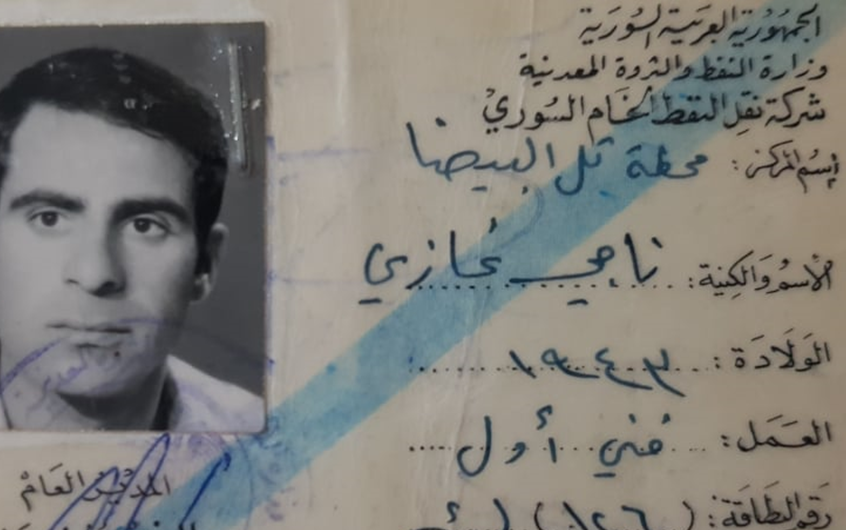 الجمهورية العربية السورية
وزارة النفط والثروة المعدنية
شركة نقل النفط الخام السوري
إسم المركز: محطة تل البيضا
الأسم والكنية: ناجي غازي
الولادة: ١٩٤٣
العمل: فني أول
رقم البطاقة: (١٢٦)
المدير العام